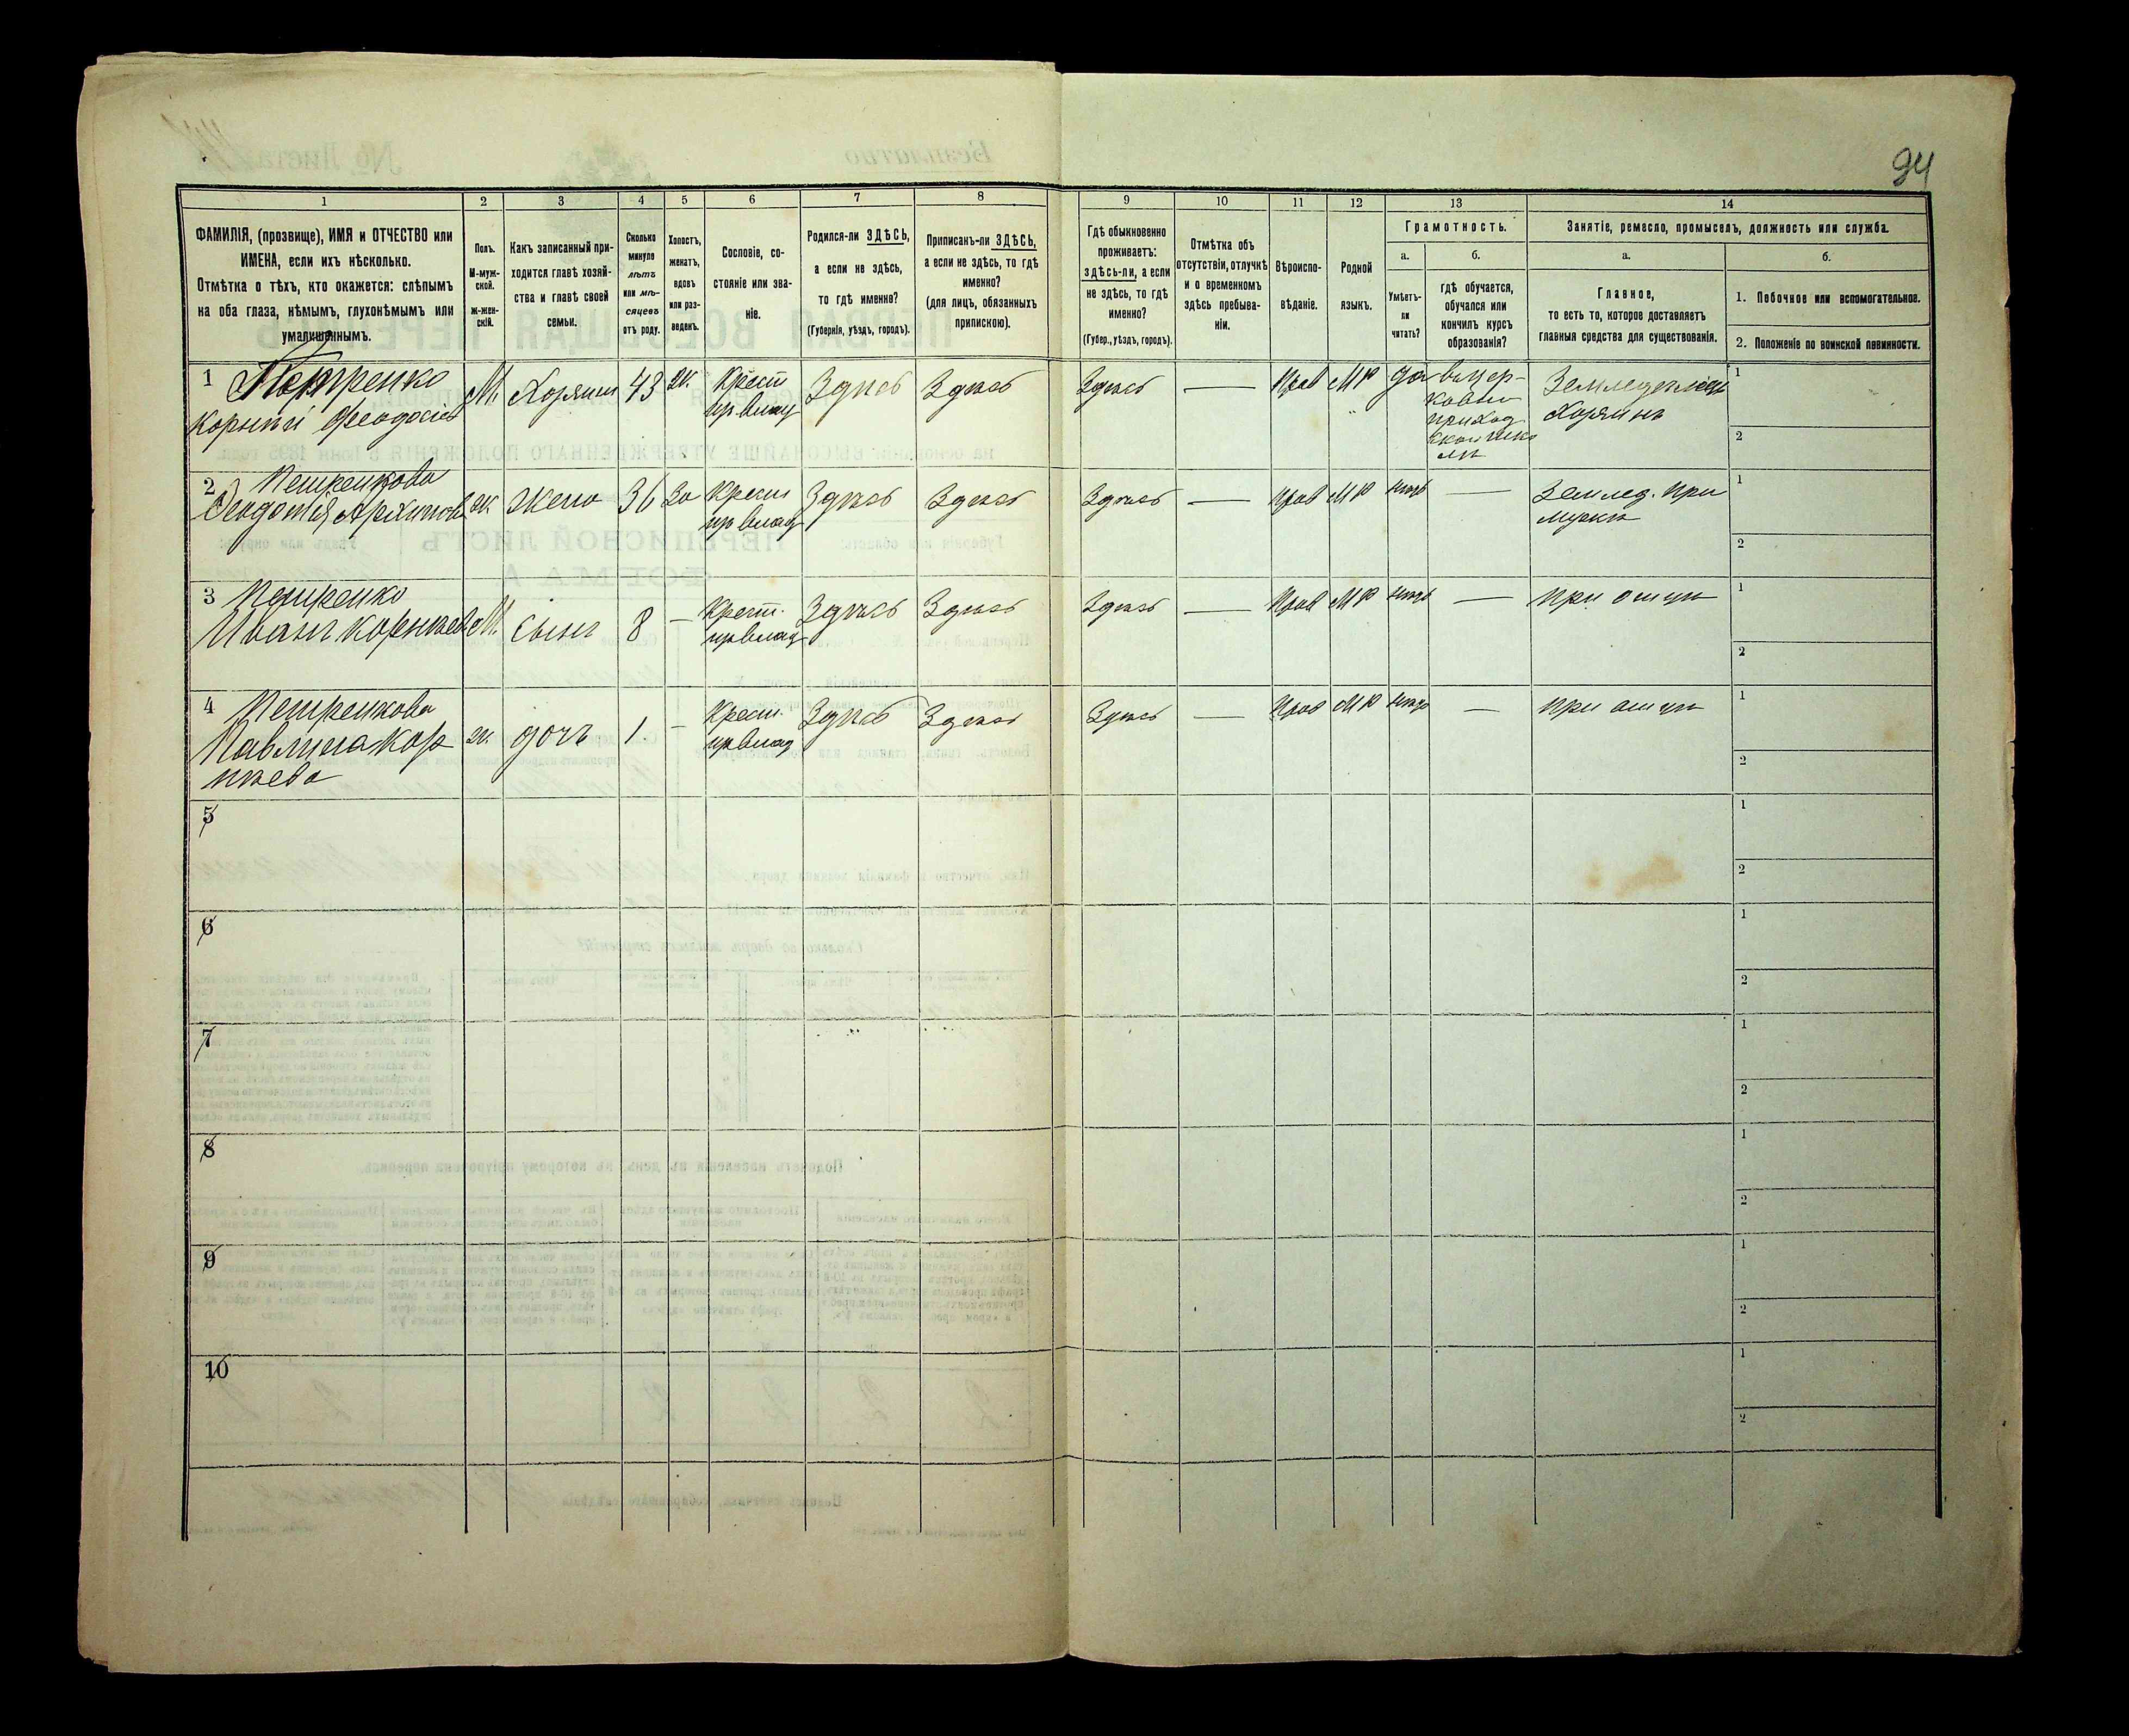 94
1
2
3
4
5
6
7
8
9
10
11
12
13
14
ФАМИЛІЯ, (прозвище), ИМЯ и ОТЧЕСТВО или
ИМЕНА, если ихъ нѣсколько.
Отмѣтка о тѣхъ, кто окажется: слѣпымъ
на оба глаза, нѣмымъ, глухонѣмымъ или
умалишеннымъ.
Полъ.
М-муж-
ской.
Ж-жен-
скій.
Какъ записанный при-
ходится главѣ хозяй-
ства и главѣ своей
семьи.
Сколько
минуло
лѣтъ
или мѣ-
сяцевъ
отъ роду.
Холостъ,
женатъ,
вдовъ
или раз-
веденъ.
Сословіе, со-
стояніе или зва-
ніе.
Родился-ли ЗДѢСЬ,
а если не здѣсь,
то гдѣ именно?
(Губернія, уѣздъ, городъ).
Приписанъ-ли ЗДѢСЬ,
а если не здѣсь, то гдѣ
именно?
(для лицъ, обязанныхъ
припискою).
Гдѣ обыкновенно
проживаетъ:
здѣсь-ли, а если
не здѣсь, то гдѣ
именно?
(Губер., уѣздъ, городъ).
Отмѣтка объ
отсутствіи, отлучкѣ
и о временномъ
здѣсь пребыва-
ніи.
Вѣроиспо-
вѣданіе.
Родной
языкъ.
Грамотность.
а.
Умѣетъ-
ли
читать?
б.
гдѣ обучается,
обучался или
кончилъ курсъ
образованія?
Занятіе, ремесло, промыселъ, должность или служба.
а.
Главное,
то есть то, которое доставляетъ
главныя средства для существованія.
б.
1. Побочное или вспомогательное.
2. Положеніе по воинской повинности.
1 Петренко
Корнѣй Феодосіев
М. Хозяинъ 43 ж. Крест
ир влад
Здѣсь Здѣсь Здѣсь — Прав МР да
в церковно
приход
ской шко
лѣ
Земледѣлецъ
Хозяинъ
1
2
2 Петренкова
Феодотія Архипова
ж. жена 36 за Крест
ир влад
Здѣсь Здѣсь Здѣсь — Прав МР нѣтъ —
Землед. при
мужѣ
1
2
3 Петренко
Иванъ Корнѣев
М. сынъ 8 — Крест.
ир влад
Здѣсь Здѣсь Здѣсь — Прав МР нѣтъ — при отцѣ
1
2
4 Петренкова
Павлина Кор
нѣева
ж. дочь 1. — Крест.
ир влад
Здѣсь Здѣсь Здѣсь — Прав МР нѣтъ — при отцѣ
1
2
5
1
2
6
1
2
7
1
2
8
1
2
9
1
2
10
1
2